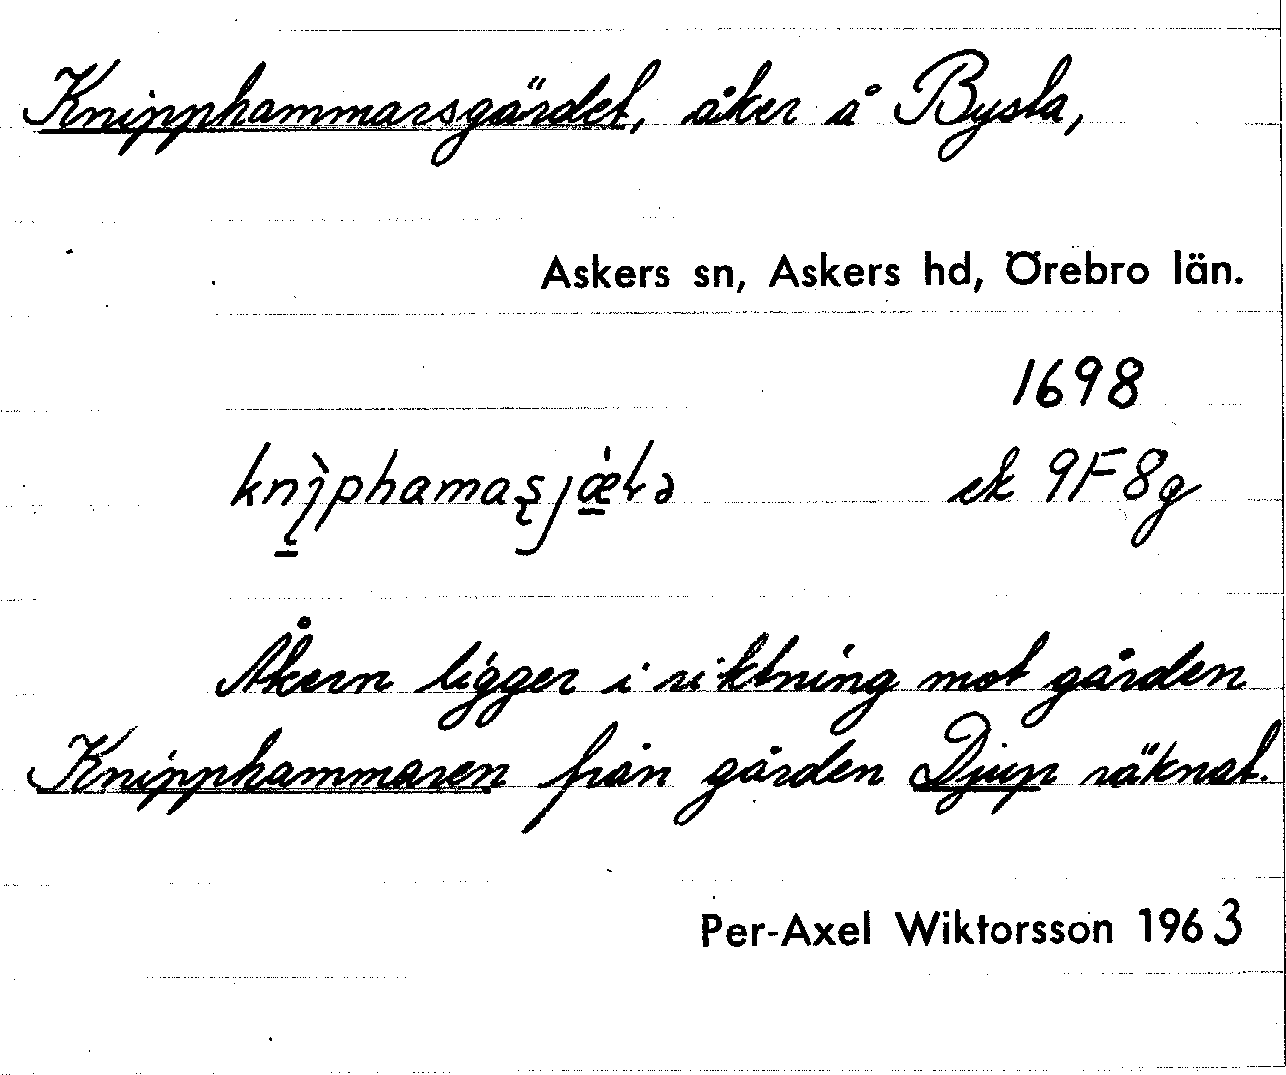 Knipphammarsgärdet, åker å Bysta,
Askers sn, Askers hd, Örebro län.
1698
ek 9F8g
Åkern ligger i riktning mot gården
Knipphammaren från gården Djup räknat.
Per-Axel Wiktorsson 1963